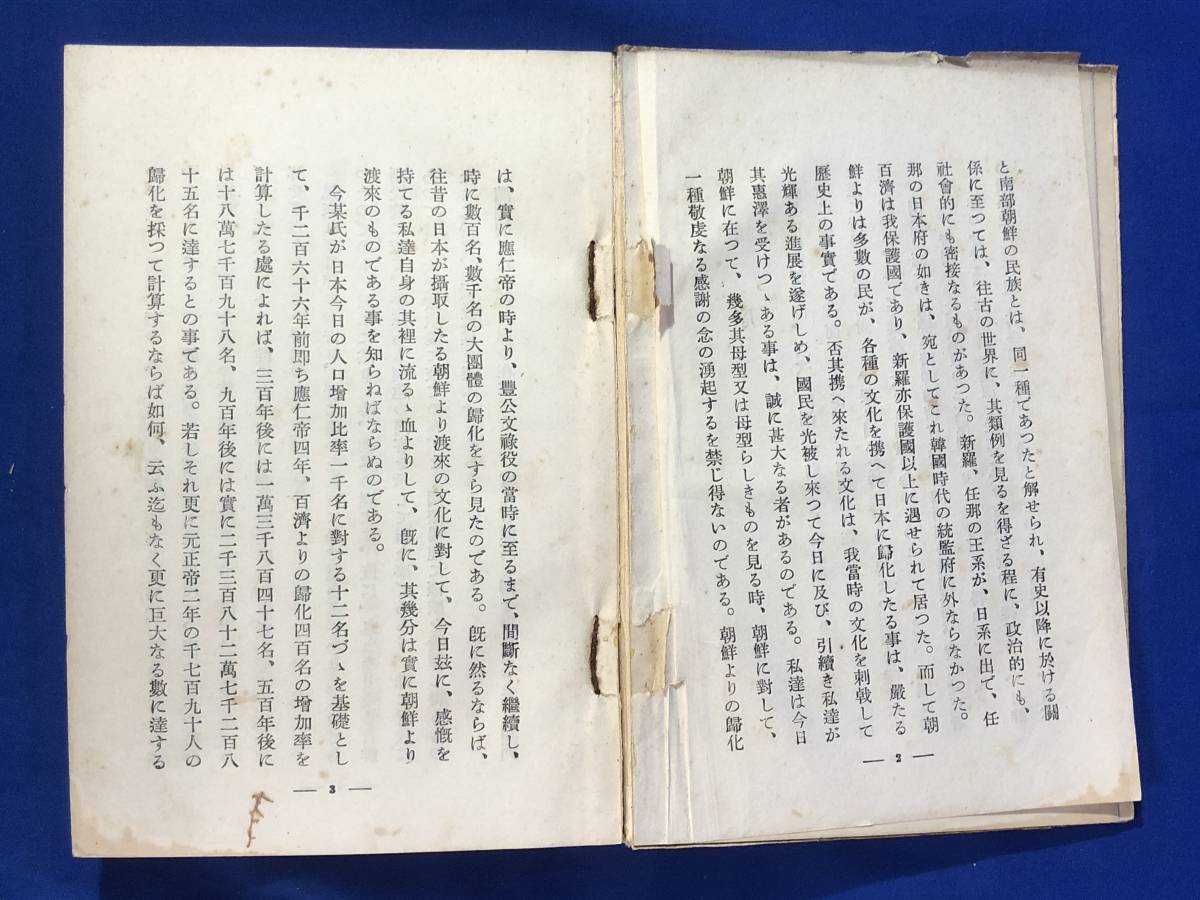 と南部朝鮮の民族とは、同一種であつたと解せられ、有史以降に於ける關
係に至つては、往古の世界に、其類例を見るを得ざる程に、政治的にも、
社會的にも密接なるものがあつた。新羅、任那の王系が、日系に出で、任
那の日本府の如きは、宛としてこれ韓國時代の統監府に外ならなかつた。
百濟は我保護國であり、新羅亦保護國以上に遇せられて居つた。而して朝
鮮よりは多數の民が、各種の文化を携へて日本に歸化したる事は、嚴たる
歷史上の事實である。否其携へ來たれる文化は、我當時の文化を刺戟して
光輝ある進展を遂げしめ、國民を光被し來つて今日に及び、引續き私達が
其惠澤を受けつゝある事は、誠に甚大なる者があるのである。私達は今日
朝鮮に在つて、幾多其母型又は母型らしきものを見る時、朝鮮に對して、
一種敬虔なる感謝の念の湧起するを禁じ得ないのである。朝鮮よりの歸化
— 2 —
は、實に應仁帝の時より、豐公文祿役の當時に至るまで、間斷なく繼續し、
時に數百名、數千名の大團體の歸化をすら見たのである。旣に然るならば、
往昔の日本が攝取したる朝鮮より渡來の文化に對して、今日玆に、感慨を
持てる私達自身の其裡に流るゝ血よりして、旣に、其幾分は實に朝鮮より
渡來のものである事を知らねばならぬのである。
今某氏が日本今日の人口增加比率一千名に對する十二名づゝを基礎とし
て、千二百六十六年前即ち應仁帝四年、百濟よりの歸化四百名の增加率を
計算したる處によれば、三百年後には一萬三千八百四十七名、五百年後に
は十八萬七千百九十八名、九百年後には實に二千三百八十二萬七千二百八
十五名に達するとの事である。若しそれ更に元正帝二年の千七百九十人の
歸化を採つて計算するならば如何、云ふ迄もなく更に巨大なる數に達する
— 3 —